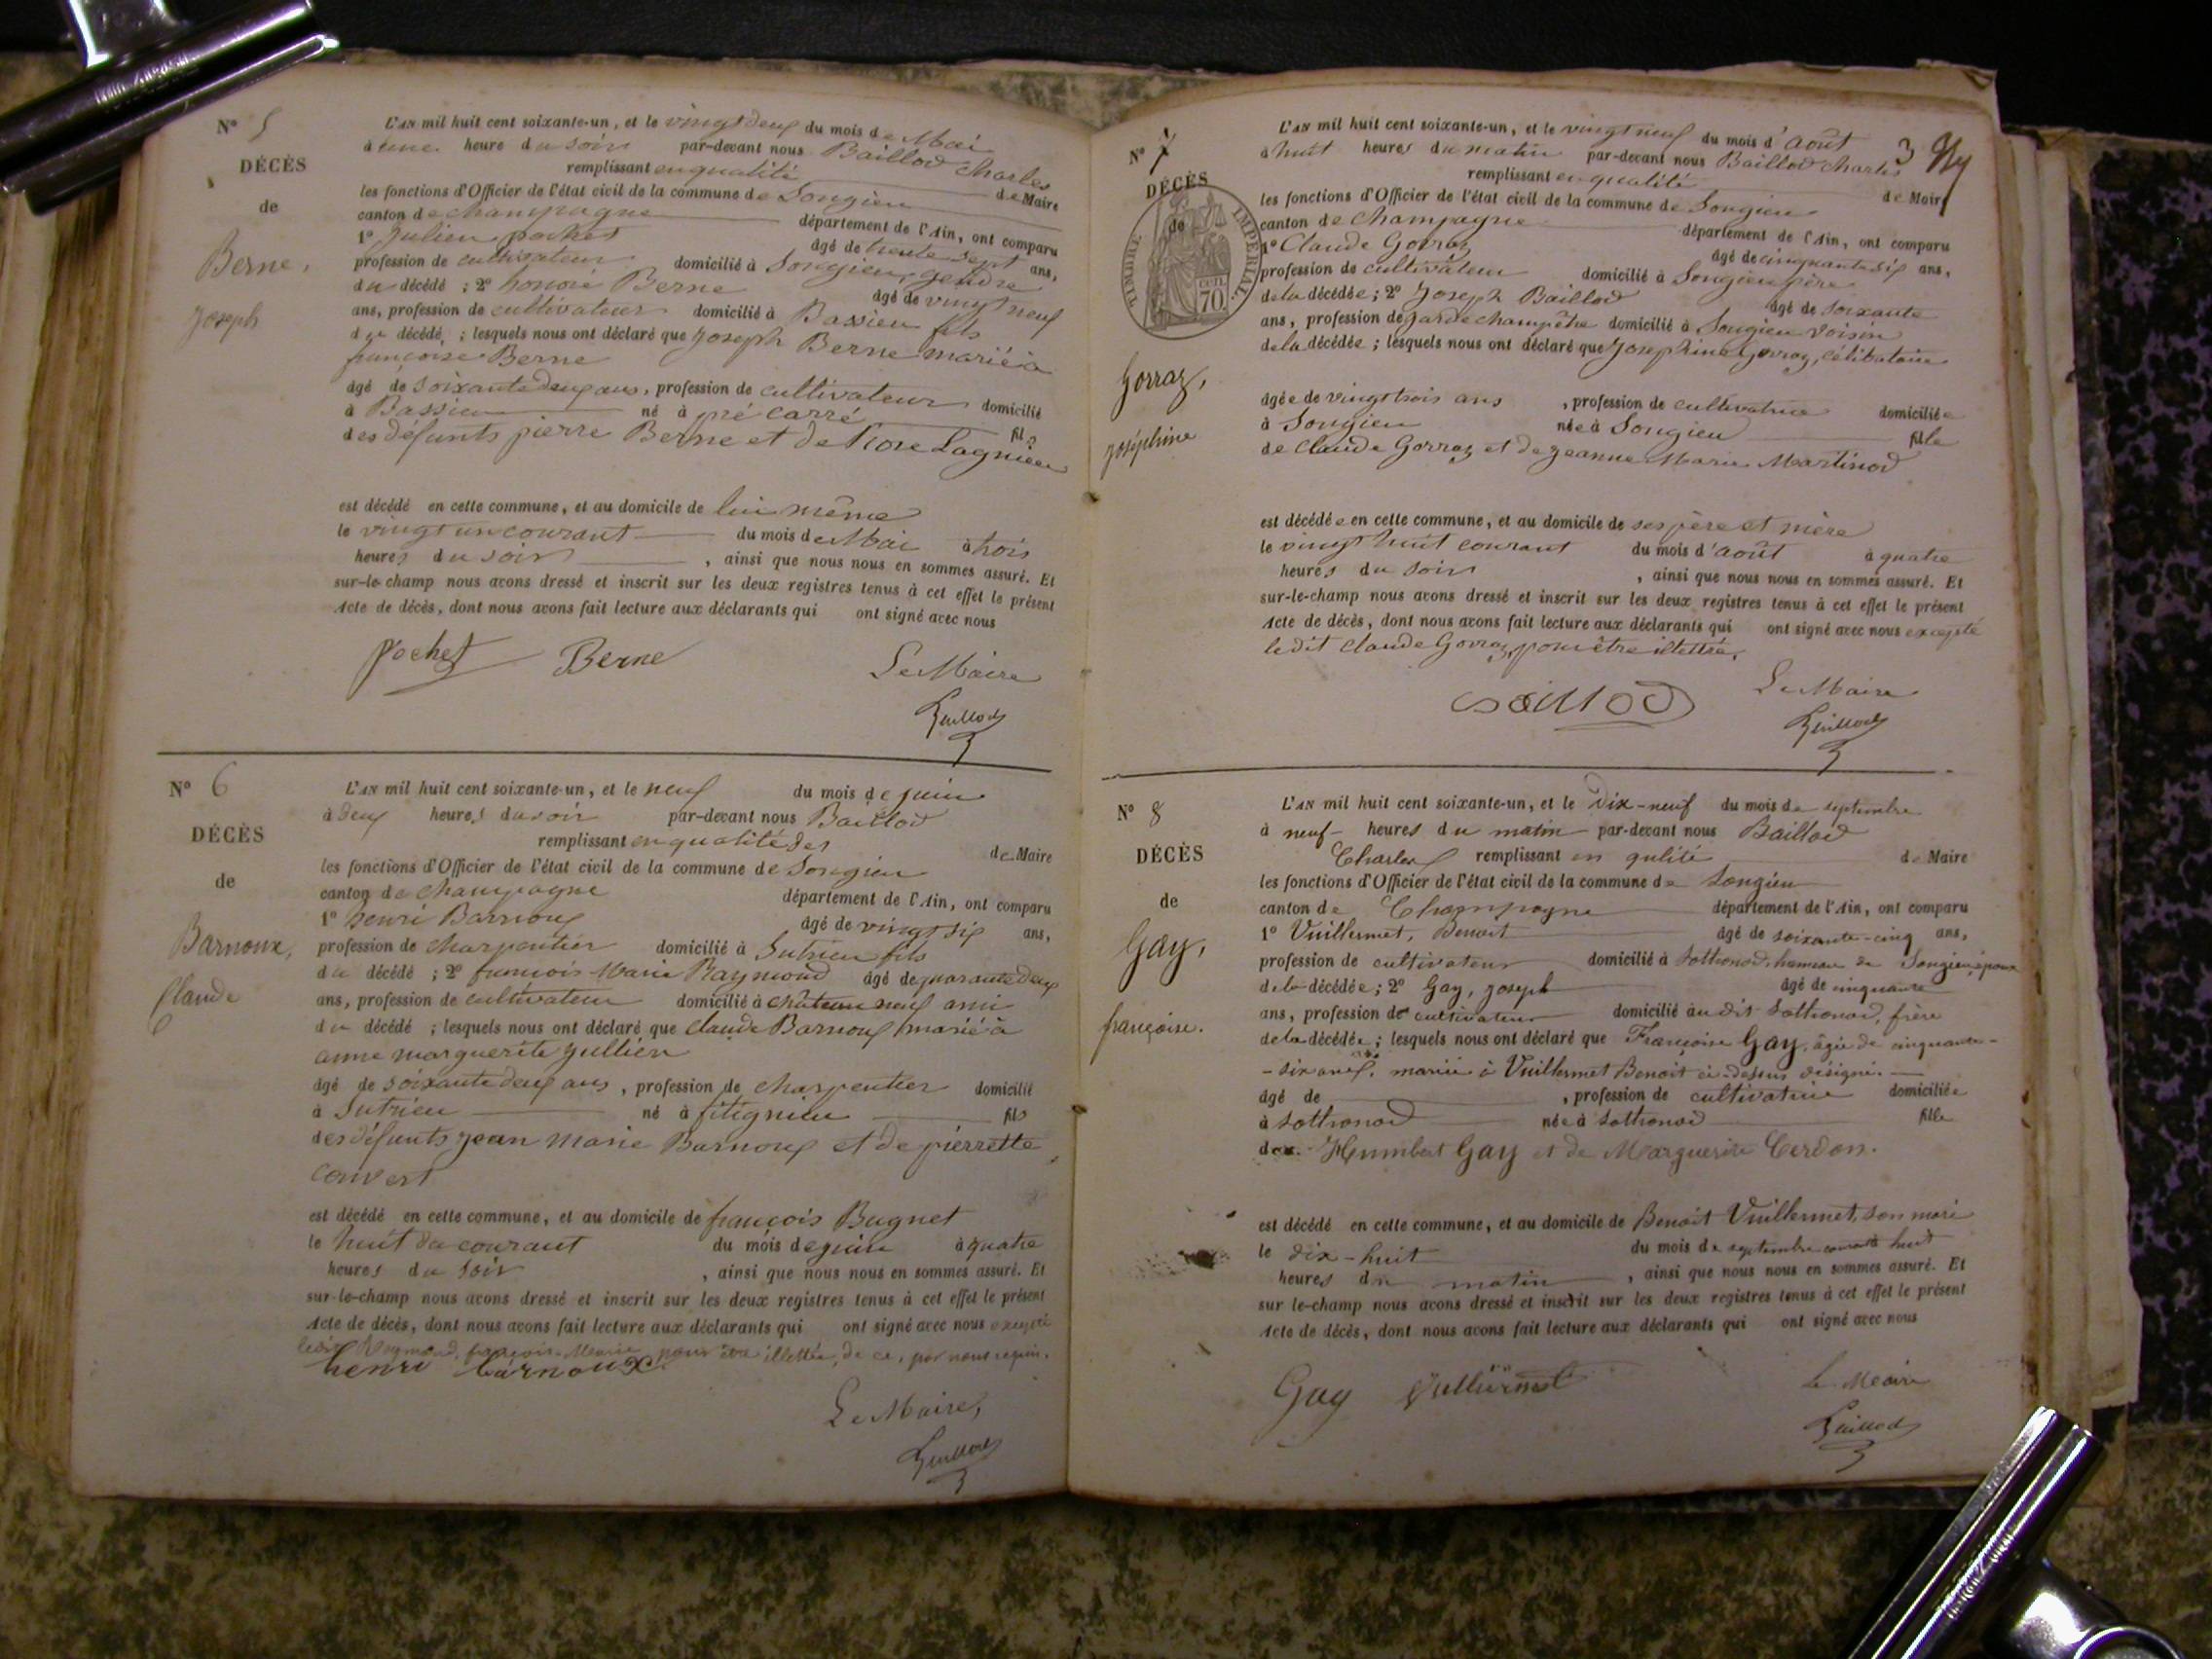 N° 5
DÉCÈS
de
Berne,
Joseph
L'AN mil huit cent soixante-un, et le vingt deux du mois de Mai
à une heure du soir par-devant nous Baillod Charles
remplissant en qualité de Maire
les fonctions d'Officier de l'état civil de la commune de Songieu
canton de champagne département de l'Ain, ont comparu
1° Julien pochet âgé de trente sept ans,
profession de cultivateur domicilié à Songieu, gendre
du décédé ; 2° honoré Berne âgé de vingt neuf
ans, profession de cultivateur domicilié à Bassieu fils
du décédé ; lesquels nous ont déclaré que Joseph Berne marié à
françoise Berne
âgé de soixante deux ans, profession de cultivateur domicilié
à Bassieu né à pré carré fils
des défunts pierre Berne et de Lagnieu
est décédé en cette commune, et au domicile de lui même
le vingt un courant du mois de Mai à trois
heures du soir , ainsi que nous nous en sommes assuré. Et
sur-le-champ nous avons dressé et inscrit sur les deux registres tenus à cet effet le présent
Acte de décès, dont nous avons fait lecture aux déclarants qui ont signé avec nous
Pochet Berne Le Maire
Baillod
N° 6
DÉCÈS
de
Barnoux,
Claude
L'AN mil huit cent soixante-un, et le neuf du mois de juin
à deux heures du soir par-devant nous Baillod
remplissant en qualité de Maire
les fonctions d'Officier de l'état civil de la commune de Songieu
canton de champagne département de l'Ain, ont comparu
1° henri Barnoux âgé de vingt six ans,
profession de charpentier domicilié à Sutrieu fils
du décédé ; 2° françois Marie Raymond âgé de quarante deux
ans, profession de cultivateur domicilié à château neuf ami
du décédé ; lesquels nous ont déclaré que claude Barnoux marié à
anne marguerite jullien
âgé de soixante deux ans, profession de charpentier domicilié
à Sutrieu né à fitignieu fils
des défunts jean marie Barnoux et de pierrette
convert
est décédé en cette commune, et au domicile de françois Bugnet
le huit du courant du mois de juin à quatre
heures du soir , ainsi que nous nous en sommes assuré. Et
sur-le-champ nous avons dressé et inscrit sur les deux registres tenus à cet effet le présent
Acte de décès, dont nous avons fait lecture aux déclarants qui ont signé avec nous excepté
ledit Raymond, françois-Marie pour être illettré, de ce, par nous requis.
henri barnoux
Le Maire,
Baillod
3
N° 7
DÉCÈS
de
TIMBRE IMPÉRIAL
CENT. 70
Gorraz,
Joséphine
L'AN mil huit cent soixante-un, et le vingt neuf du mois d'août
à huit heures du matin par-devant nous Baillod Charles
remplissant en qualité de Maire
les fonctions d'Officier de l'état civil de la commune de Songieu
canton de champagne département de l'Ain, ont comparu
1° Claude Gorraz âgé de cinquante six ans,
profession de cultivateur domicilié à Songieu père
de la décédée ; 2° Joseph Baillod âgé de soixante
ans, profession de garde champêtre domicilié à Songieu voisin
de la décédée ; lesquels nous ont déclaré que Josephine Gorraz, célibataire
âgée de vingt trois ans , profession de cultivatrice domiciliée
à Songieu née à Songieu fille
de Claude Gorraz et de jeanne Marie Martinod
est décédée en cette commune, et au domicile de ses père et mère
le vingt huit courant du mois d'août à quatre
heures du soir , ainsi que nous nous en sommes assuré. Et
sur-le-champ nous avons dressé et inscrit sur les deux registres tenus à cet effet le présent
Acte de décès, dont nous avons fait lecture aux déclarants qui ont signé avec nous excepté
le dit Claude Gorraz, pour être illettré.
Baillod Le Maire
Baillod
N° 8
DÉCÈS
de
Gay,
françoise.
L'AN mil huit cent soixante-un, et le dix-neuf du mois de septembre
à neuf heures du matin par-devant nous Baillod
Charles remplissant en qulité de Maire
les fonctions d'Officier de l'état civil de la commune de Songieu
canton de Champagne département de l'Ain, ont comparu
1° Vuillermet, Benoit âgé de soixante-cinq ans,
profession de cultivateur domicilié à Sothonod, hameau de Songieu, époux
de la décédée ; 2° Gay, joseph âgé de cinquante
ans, profession de cultivateur domicilié au dit Sothonod, frère
de la décédée ; lesquels nous ont déclaré que Françoise Gay, âgée de cinquante-
-six ans, mariée à Vuillermet Benoit ci-dessus désigné.
âgé de , profession de cultivatrice domiciliée
à Sothonod née à Sothonod fille
de Humbert Gay et de Marguerite Cerdon.
est décédé en cette commune, et au domicile de Benoit Vuillermet, son mari
le dix-huit du mois de septembre courant à huit
heures du matin , ainsi que nous nous en sommes assuré. Et
sur le-champ nous avons dressé et inscrit sur les deux registres tenus à cet effet le présent
Acte de décès, dont nous avons fait lecture aux déclarants qui ont signé avec nous
Gay Vulliermet Le Maire
Baillod